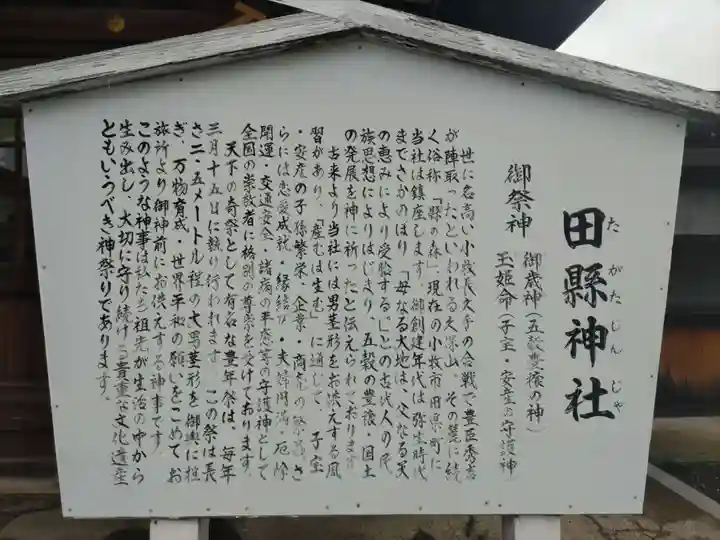 田縣神社
たがたじんじゃ
御祭神
御歳神(五穀豊穣の神)
玉姫命(子宝・安産の守護神)
世に名高い小牧長久手の合戦で豊臣秀吉
が陣取ったといわれる久保山、その麓に続
く俗称「縣の森」、現在の小牧市田県町に
当社は鎮座します。御創建年代は弥生時代
までさかのぼり、「母なる大地は、父なる天
の恵みにより受胎する」との古代人の民
族思想によりはじまり、五穀の豊穣・国土
の発展を神に祈ったと伝えられております。
古来より当社には男茎形をお供えする風
習があり、「産むは生む」に通じて、子宝
・安産の子孫繁栄、企業・商売の繁栄、さ
らには恋愛成就・縁結び・夫婦円満・厄除
開運・交通安全・諸病の平癒等の守護神として
全国の崇敬者に格別の尊崇を受けております。
天下の奇祭として有名な豊年祭は、毎年
三月十五日に執り行われます。この祭は長
さ二・五メートル程の大男茎形を御輿に担
ぎ、万物育成・世界平和の願いをこめて、お
旅所より御神前にお供えする神事です。
このような神事は私たち祖先が生活の中から
生み出し、大切に守り続ける貴重な文化遺産
ともいうべき神祭りであります。